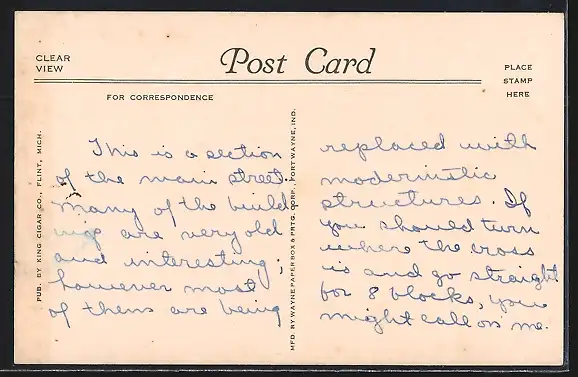 CLEAR
VIEW
Post Card
PLACE
STAMP
HERE
FOR CORRESPONDENCE
PUB. BY KING CIGAR CO., FLINT, MICH.
This is a section
of the main street.
Many of the build
ings are very old
and interesting;
however most
of them are being
MFD. BY WAYNE PAPER BOX & PRTG. CORP., FORT WAYNE, IND.
replaced with
modernistic
structures. If
you should turn
where the cross
is and go straight
for 8 blocks, you
might call on me.